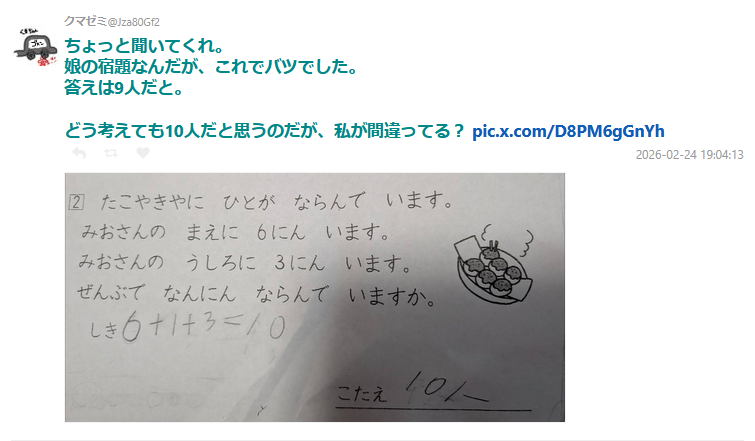 クマゼミ@Jza80Gf2
ちょっと聞いてくれ。
娘の宿題なんだが、これでバツでした。
答えは9人だと。
どう考えても10人だと思うのだが、私が間違ってる？ pic.x.com/D8PM6gGnYh
2026-02-24 19:04:13
2 たこやきやに ひとが ならんで います。
みおさんの まえに 6にん います。
みおさんの うしろに 3にん います。
ぜんぶで なんにん ならんで いますか。
しき 6+1+3=10
こたえ 10人